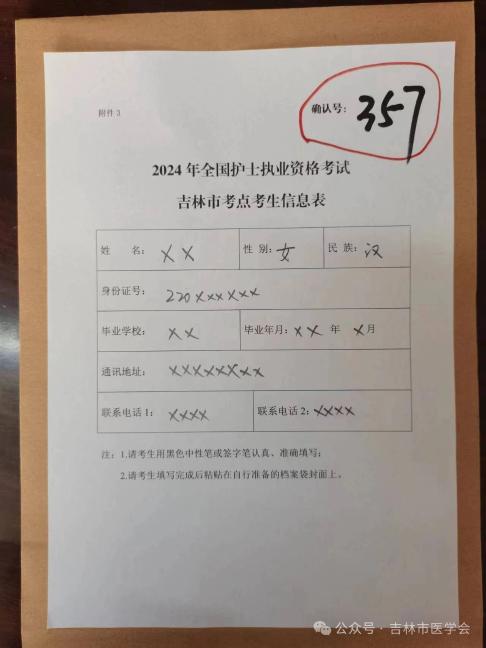 附件 3
确认号：357
2024 年全国护士执业资格考试
吉林市考点考生信息表
姓 名：XX 性 别：女 民 族：汉
身份证号：220XXXXXXX
毕业学校：XX 毕业年月：XX 年 X月
通讯地址：XXXXXXXXX
联系电话 1：XXXX 联系电话 2：XXXX
注：1.请考生用黑色中性笔或签字笔认真、准确填写；
2.请考生填写完成后粘贴在自行准备的档案袋封面上。
公众号 · 吉林市医学会